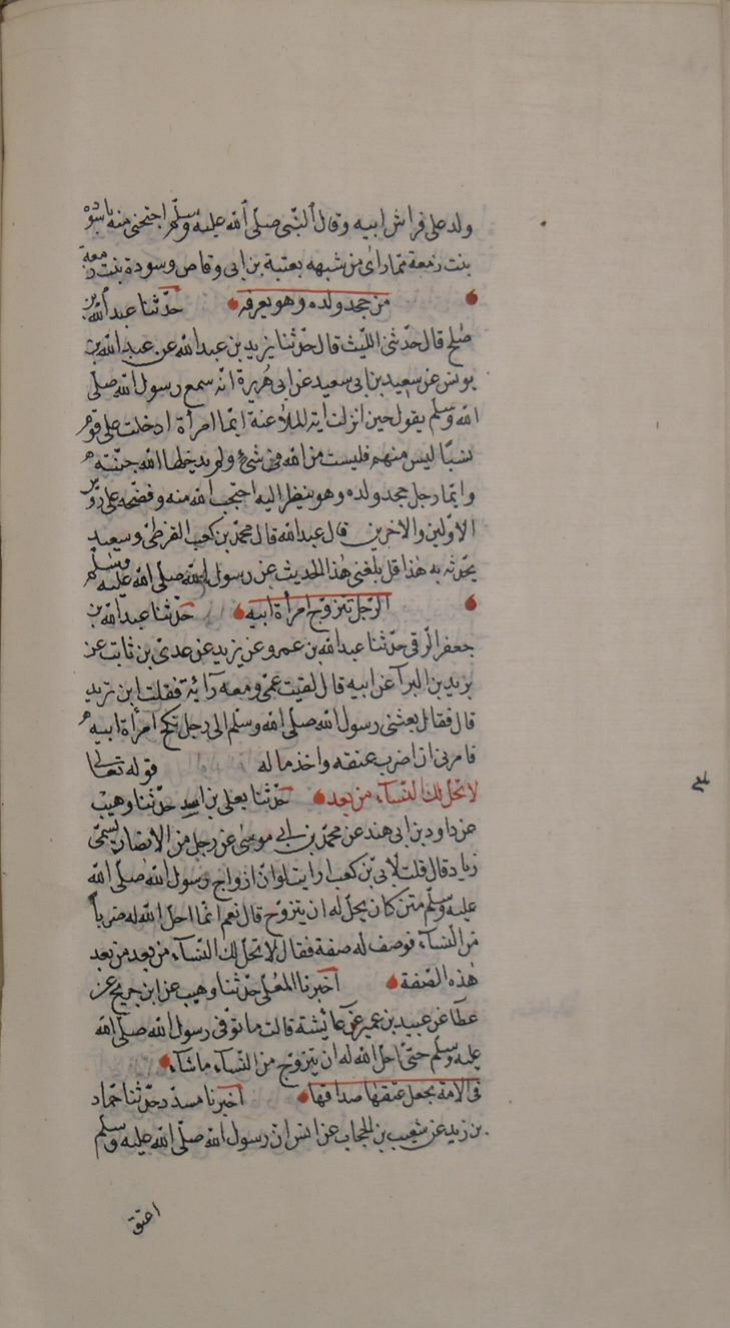 ولد على فراش ابيه وقال النبي صلى الله عليه وسلم احتجبي منه يا سودة
بنت زمعة مما راى من شبهه بعتبة بن ابي وقاص وسودة بنت زمعة
من جحد ولده وهو يعرفه حدثنا عبد الله بن
صلح قال حدثني الليث قال حدثنا يزيد بن عبد الله عن عبد الله بن
يونس عن سعيد بن ابي سعيد عن ابي هريرة انه سمع رسول الله صلى
الله وسلم يقول حين انزلت اية الملاعنة ايما امرأة ادخلت على قوم
نسبا ليس منهم فليست من الله في شئ ولم يدخلها الله جنته
وايما رجل جحد ولده وهو ينظر اليه احتجب الله منه وفضحه على رؤس
الاولين والاخرين قال عبد الله قال محمد بن كعب القرظي وسعيد
يحدثه به هذا قد بلغني هذا الحديث عن رسول الله صلى الله عليه وسلم
الرجل يتزوج امرأة ابيه حدثنا عبد الله بن
جعفر الرقي حدثنا عبد الله بن عمرو عن يزيد عن عدي بن ثابت عن
يزيد بن البرآ عن ابيه قال لقيت عمي ومعه رآية فقلت اين تريد
قال فقال بعثني رسول الله صلى الله وسلم الى رجل نكح امرأة ابيه
فامرني ان اضرب عنقه واخذ ماله قوله تعالى
لا تحل لك النسآء من بعد حدثنا يعلى بن اسد حدثنا وهيب
عن داود بن ابي هند عن محمد بن ابي موسى عن رجل من الانصار يسمى
زياد قال قلت لابي بن كعب ارايت لو ان ازواج رسول الله صلى الله
عليه وسلم متن كان يحل له ان يتزوج قال نعم انما احل الله له ضربا
من النسآء فوصف له صفة فقال لا تحل لك النسآء من بعد من بعد
هذه الصفة اخبرنا المعلى حدثنا وهيب عن ابن جريج عن
عطآ عن عبيد بن عمير عن عآئشة قالت ما توفي رسول الله صلى الله
عليه وسلم حتى احل الله له ان يتزوج من النسآء ماشآء
في الامة يجعل عتقها صداقها اخبرنا مسدد حدثنا حماد
بن زيد عن شعيب بن الحجاب عن انس ان رسول الله صلى الله عليه وسلم
اعتق